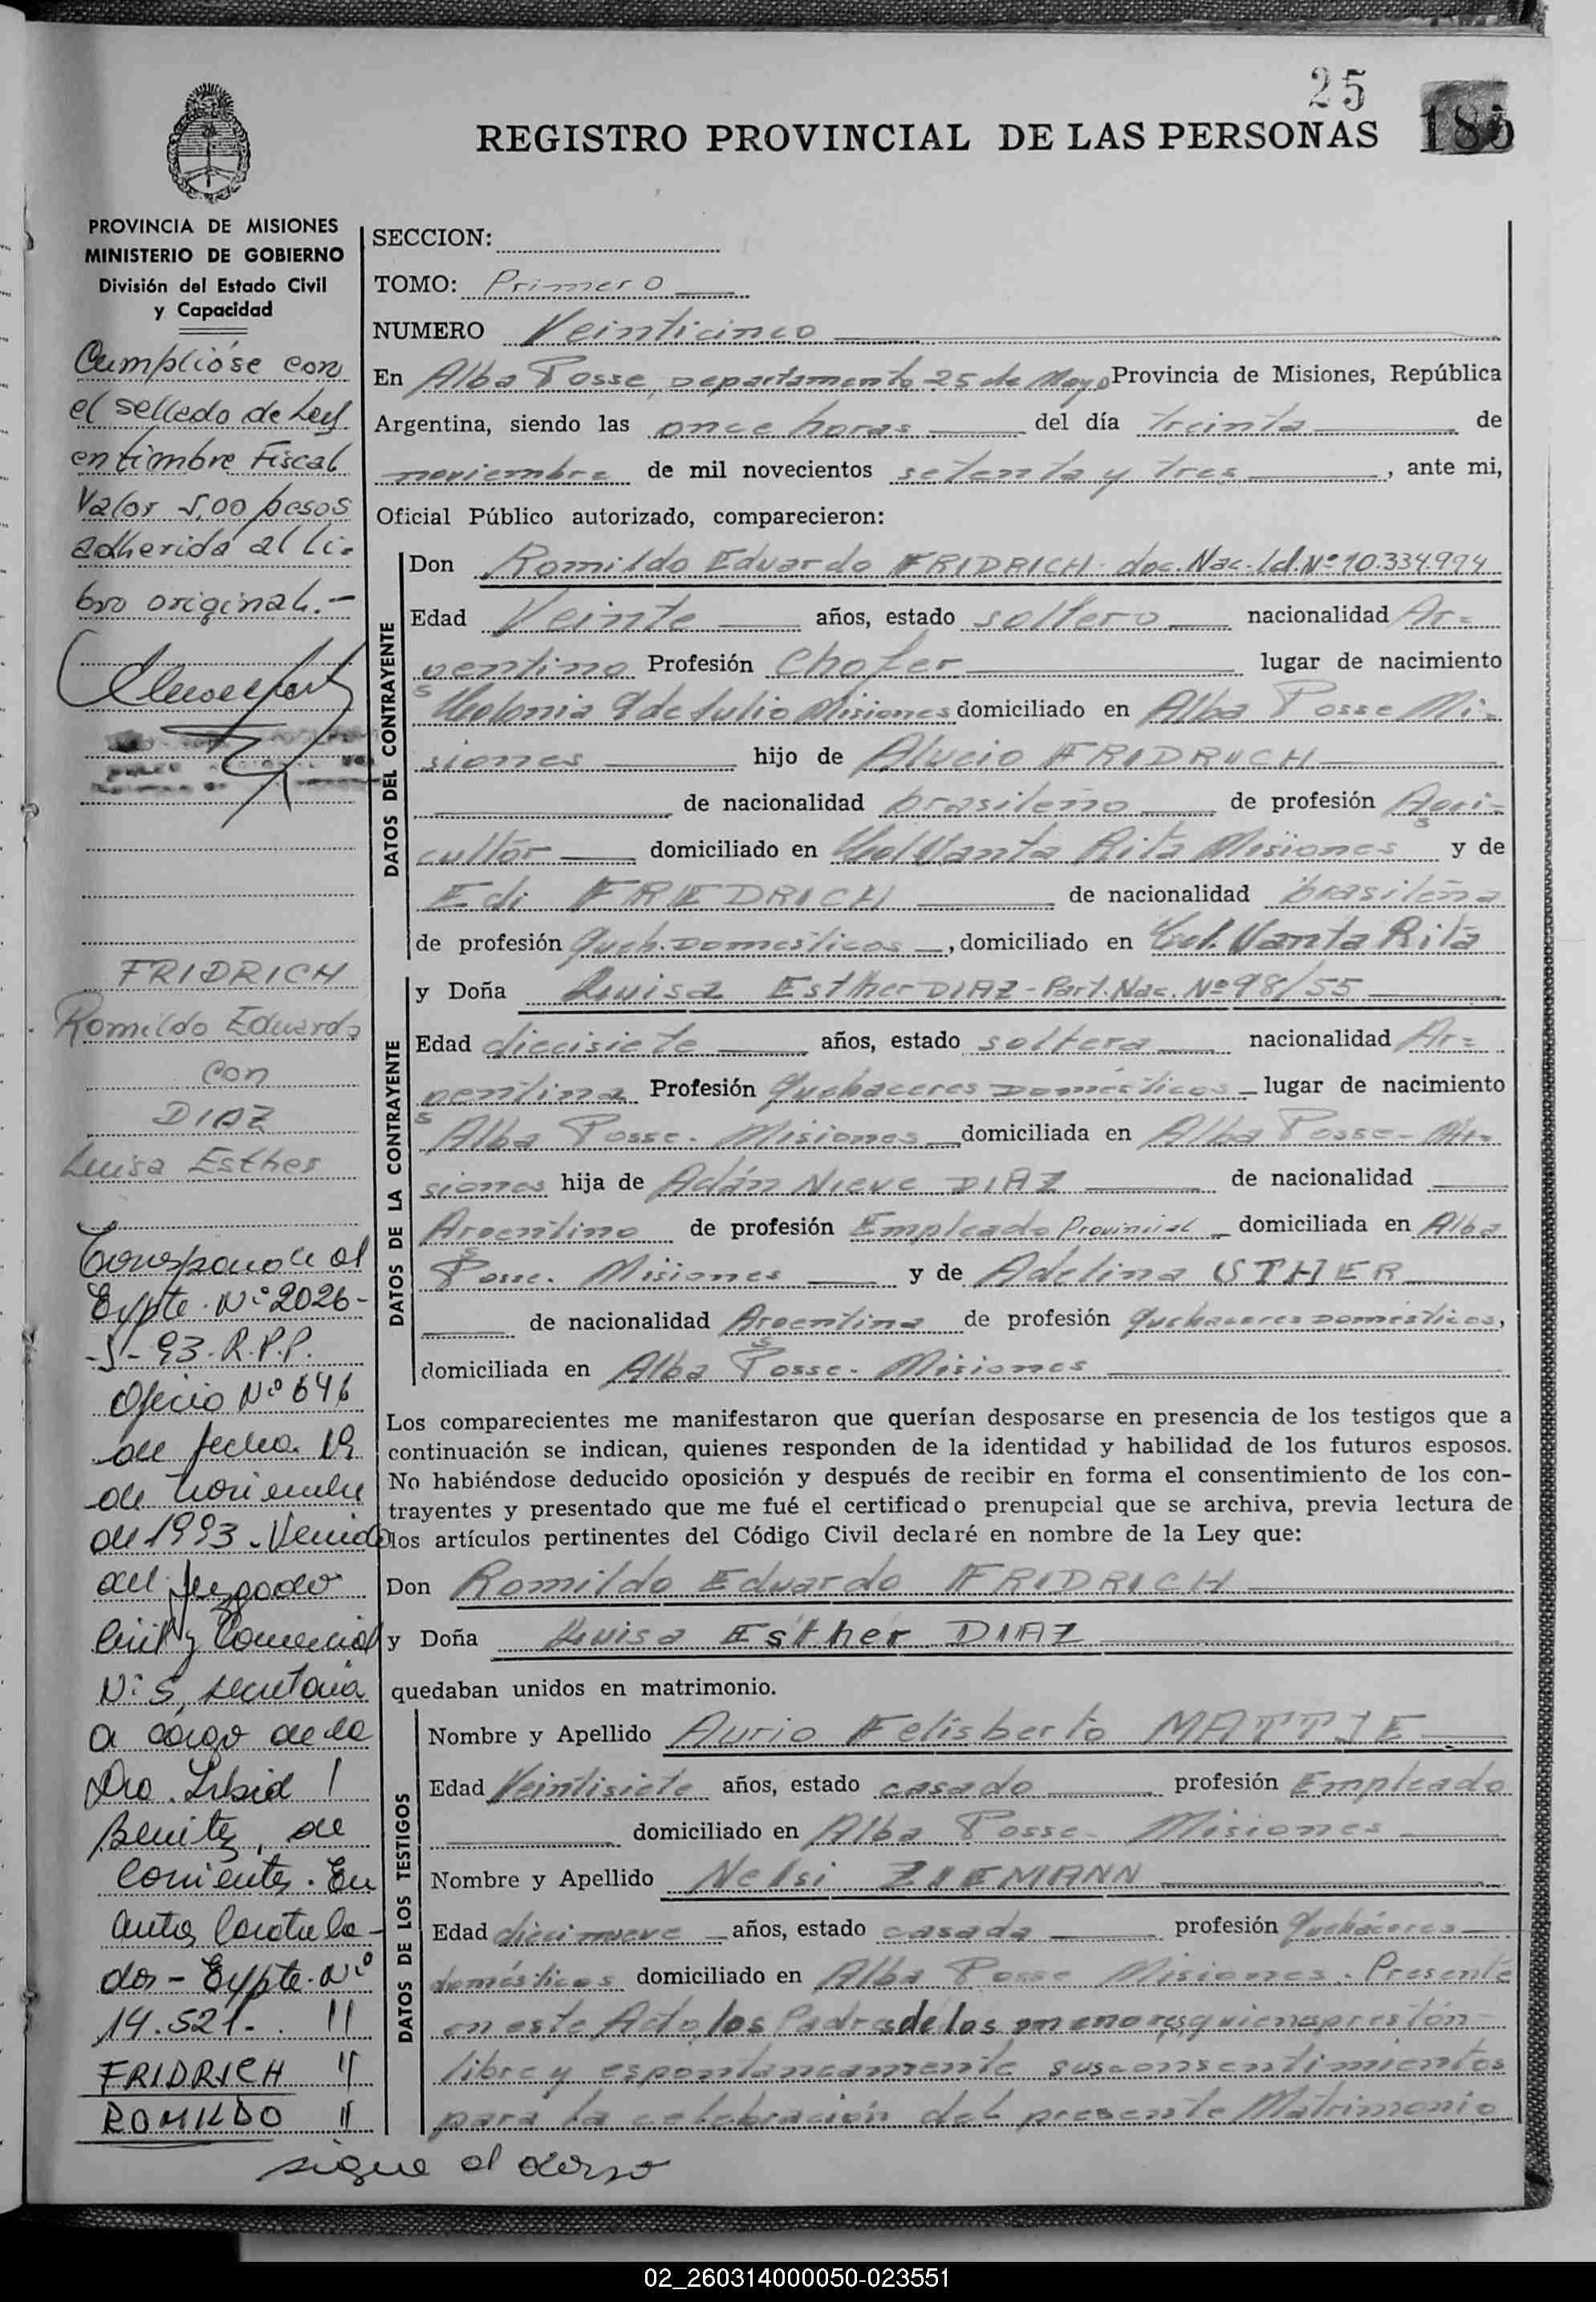 25
185
REGISTRO PROVINCIAL DE LAS PERSONAS
PROVINCIA DE MISIONES
MINISTERIO DE GOBIERNO
División del Estado Civil
y Capacidad
Cumplióse con
el sellado de Ley
en timbre Fiscal
Valor 5,00 pesos
adherida al Li-
bro original.-
FRIDRICH
Romildo Eduardo
Con
DIAZ
Luisa Esther
Corresponde al
Expte. Nº 2026-
-S-93-R.P.P.
Oficio Nº 646
de fecha 19
de Noviembre
de 1993. Venido
del Juzgado
Civil y Comercial
Nº 5, secretaria
a cargo de la
Dra.
Benitez, de
Corrientes. En
autos Caratula-
dos - Expte. Nº
14.521. "
FRIDRICH "
ROMILDO "
sigue al dorso
SECCION:
TOMO: Primero
NUMERO Veinticinco
En Alba Posse, Departamento 25 de Mayo Provincia de Misiones, República
Argentina, siendo las once horas del día treinta de
noviembre de mil novecientos setenta y tres, ante mi,
Oficial Público autorizado, comparecieron:
DATOS DEL CONTRAYENTE
Don Romildo Eduardo FRIDRICH doc. Nac. Id. Nº 10.334.994
Edad Veinte años, estado soltero nacionalidad Ar=
gentino Profesión Chofer lugar de nacimiento
Colonia 9 de Julio Misiones domiciliado en Alba Posse Mi-
siones hijo de Alucio FRIDRICH
de nacionalidad brasileño de profesión Agri-
cultor domiciliado en Col Santa Rita Misiones y de
Edi FRIEDRICH de nacionalidad brasileña
de profesión Queh. Domesticos, domiciliado en Col. Santa Rita
DATOS DE LA CONTRAYENTE
y Doña Luisa Esther DIAZ - Part. Nac. Nº 98/55
Edad diecisiete años, estado soltera nacionalidad Ar=
gentina Profesión Quehaceres Domésticos lugar de nacimiento
Alba Posse. Misiones domiciliada en Alba Posse - Mi-
siones hija de Adán Nieve DIAZ de nacionalidad
Argentino de profesión Empleado Provincial domiciliada en Alba
Posse. Misiones y de Adelina STHER
de nacionalidad Argentina de profesión Quehaceres Domésticos,
domiciliada en Alba Posse - Misiones
Los comparecientes me manifestaron que querían desposarse en presencia de los testigos que a
continuación se indican, quienes responden de la identidad y habilidad de los futuros esposos.
No habiéndose deducido oposición y después de recibir en forma el consentimiento de los con-
trayentes y presentado que me fué el certificado prenupcial que se archiva, previa lectura de
los artículos pertinentes del Código Civil declaré en nombre de la Ley que:
Don Romildo Eduardo FRIDRICH
y Doña Luisa Esther DIAZ
quedaban unidos en matrimonio.
DATOS DE LOS TESTIGOS
Nombre y Apellido Aurio Felisberto MATTJE
Edad Veintisiete años, estado casado profesión Empleado
domiciliado en Alba Posse - Misiones
Nombre y Apellido Nelsi ZIEMANN
Edad diecinueve años, estado casada profesión Quehaceres
domésticos domiciliado en Alba Posse Misiones. Presente
en este Acto, los Padres de los menores, quienes prestón
libre y espontaneamente sus consentimientos
para la celebración del presente Matrimonio
02_260314000050-023551